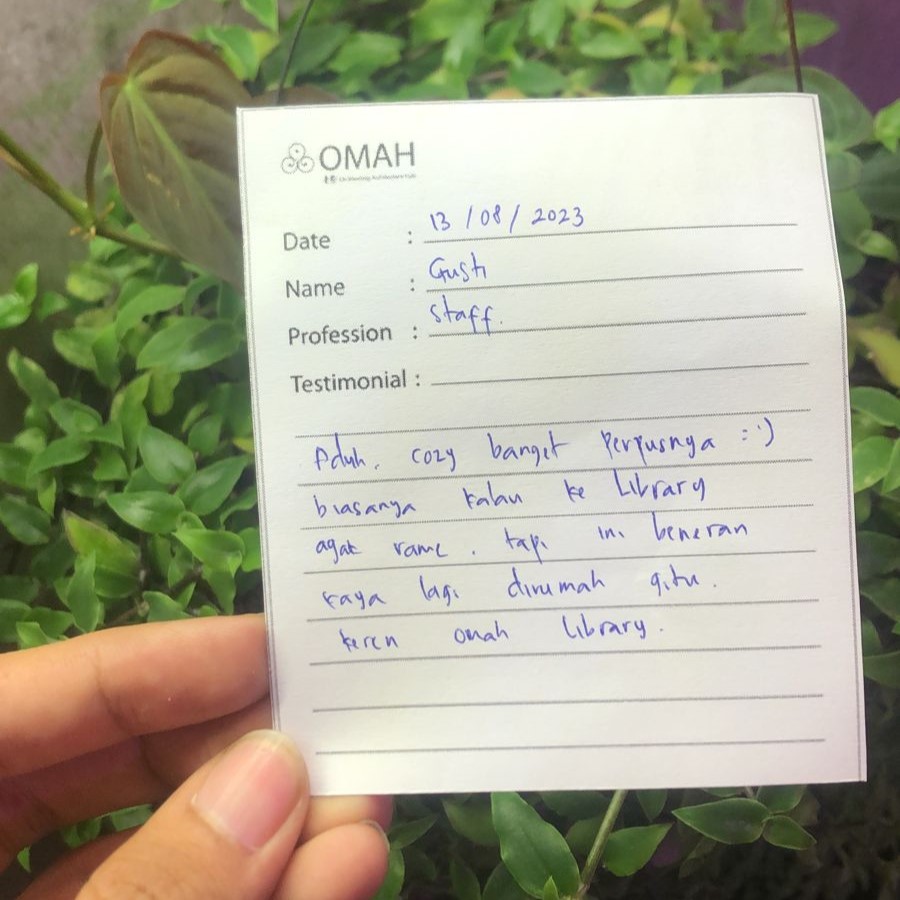 OMAH
Date : 13 / 08 / 2023
Name : Gusti
Profession : Staff.
Testimonial :
Aduh. cozy banget Perpusnya :')
biasanya kalau ke Library
agak rame. tapi ini beneran
kaya lagi dirumah gitu.
keren omah Library.